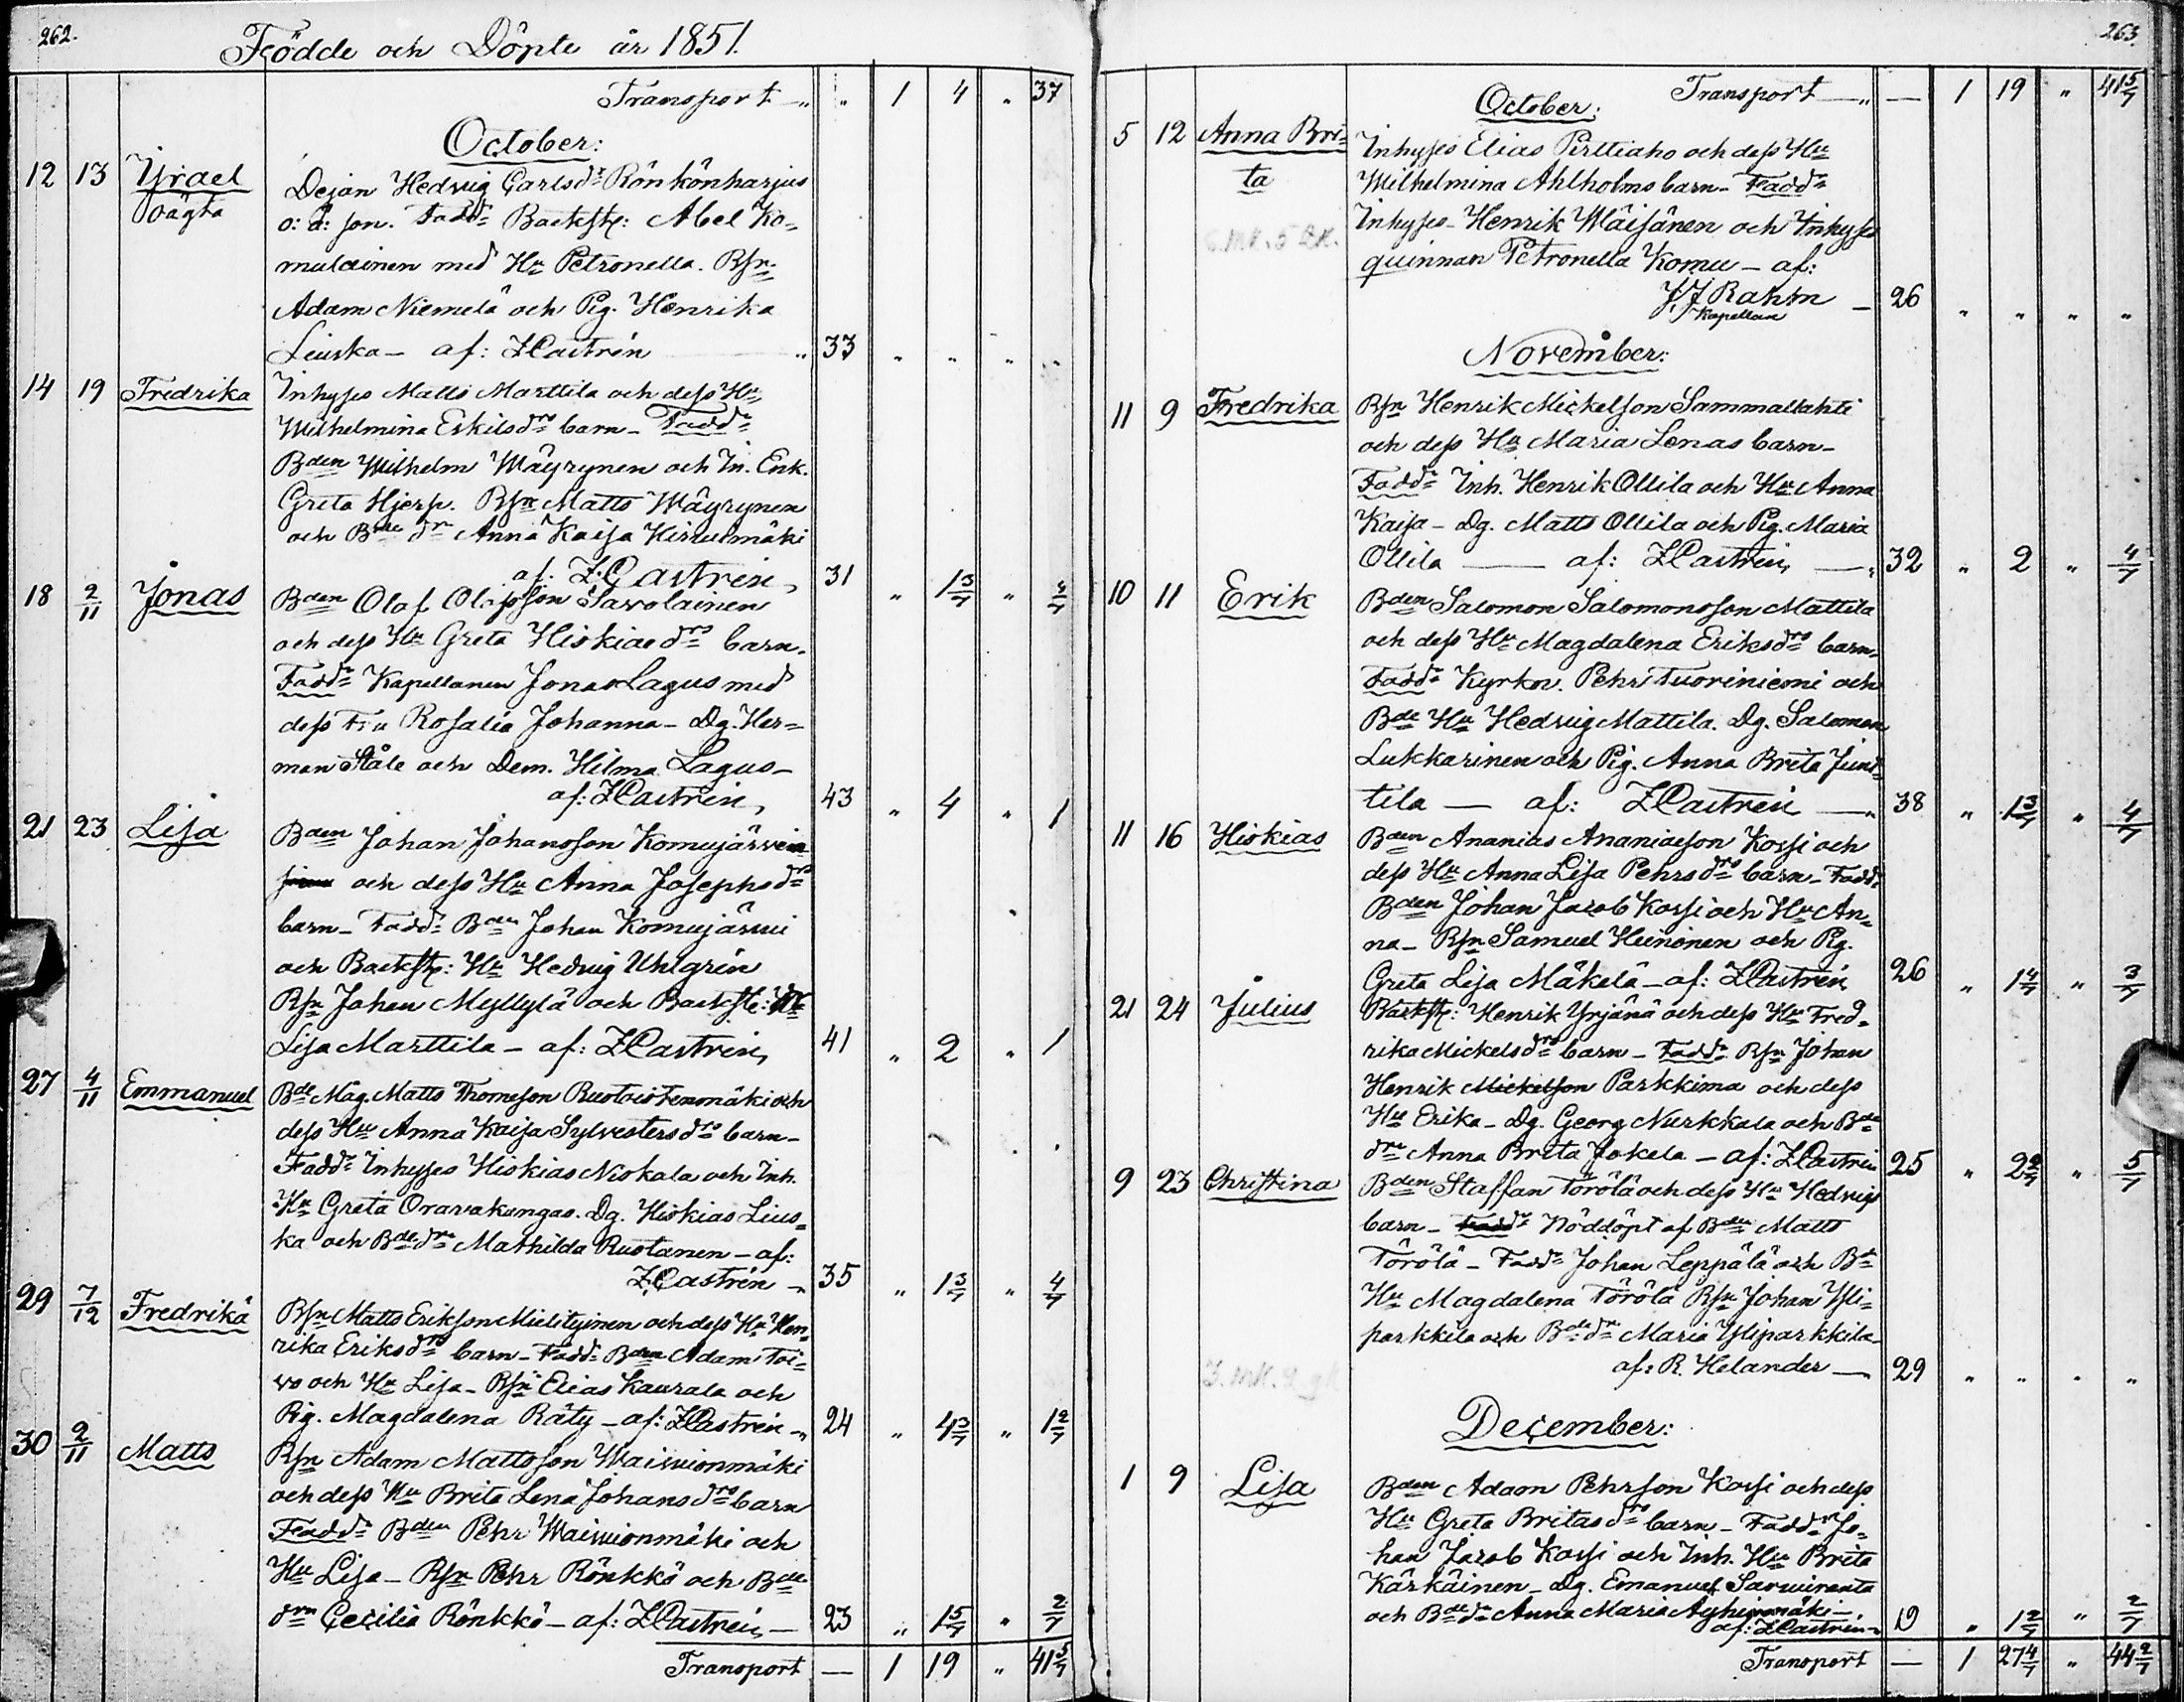 262.
Födde och Döpte år 1851.
Transport — „ „ 1 4 „ 37
October:
12 13 Israel Dejan Hedvig Carlsdr Rönkönharjus
oägta o: ä: son. Faddr Backstx: Abel Ko-
mulainen med Hu Petronella. Bsn
Adam Niemelä och Pig. Henrika
Liuska — af: ZCastrén „ 33 „ „ „ „
14 19 Fredrika Inhyses Matts Marttila och dess Hu
Wilhelmina Eskilsdrs barn — Faddr
Bden Wilhelm Wäyrynen och In. Enk.
Greta Hjerp. Bsn Matts Wäyrynen
och Bde dn Anna Kaisa Hirvimäki
af: Z.Castrén, 31 „ 1 3/7 „ 4/7
18 2/11 Jonas Bden Olof Olofsson Savolainen
och dess Hu Greta Hiskiaedrs barn.
Faddr Kapellanen Jonas Lagus med
dess Fru Rosalia Johanna — Dg. Her-
man Ståle och Dem. Hilma Lagus —
af: ZCastrén, 43 „ 4 „ 1
21 23 Lisa Bden Johan Johansson Komujärvein
och dess Hu Anna Josephsdrs
barn — Faddr Bden Johan Komujärvi
och Backstx: Hu Hedvig Uhlgrén
Bsn Johan Myllylä och Backstx: Hu
Lisa Marttila — af: ZCastrén, 41 „ 2 „ 1
27 4/11 Emmanuel Bde Måg. Matts Thomsson Ruotoistenmäki och
dess Hu Anna Kaisa Sylvestersdrs barn —
Faddr Inhyses Hiskias Niskala och Inh.
Hu Greta Oravakangas. Dg. Hiskias Lius-
ka och Bde dn Mathilda Ruotanen — af:
Z.Castrén — 35 „ 1 3/7 „ 4/7
29 7/12 Fredrika Bsn Matts Eriksson Mielityinen och dess Hu Hen-
rika Eriksdrs barn — Faddr Bden Adam Toi-
vo och Hu Lisa — Bsn Elias Kaurala och
Pig. Magdalena Räty — af: ZCastrén — 24 „ 4 3/7 „ 1 2/7
30 2/11 Matts Bsn Adam Mattsson Waivionmäki
och dess Hu Brita Lena Johansdrs barn
Faddr Bden Pehr Waivionmäki och
Hu Lisa — Bsn Pehr Rönkkö och Bde
drn Cecilia Rönkkö — af: ZCastrén — 23 „ 1 5/7 „ 2/7
Transport — 1 19 „ 41 5/7
263.
Transport — „ — 1 19 „ 41 5/7
October:
5 12 Anna Bri- Inhyses Elias Pirttiaho och dess Hu
ta Wilhelmina Ahlholms barn — Faddr
Inhyses — Henrik Wäisänen och Inhyses
quinnan Petronella Komu — af:
JJ Rahm — 26 „ „ „ „
Kapellan
November:
11 9 Fredrika Bsn Henrik Mickelsson Sammallahti
och dess Hu Maria Lenas barn —
Faddr Inh. Henrik Ollila och Hu Anna
Kaisa — Dg. Matts Ollila och Pig. Maria
Ollila — af: ZCastrén, — 32 „ 2 „ 4/7
10 11 Erik Bden Salomon Salomonsson Mattila
och dess Hu Magdalena Eriksdrs barn —
Faddr Kyrkov. Pehr Tuoriniemi och
Bde Hu Hedvig Mattila. Dg. Salomon
Lukkarinen och Pig. Anna Brita Junt-
tila — af: ZCastrén — 38 „ 1 3/7 „ 4/7
11 16 Hiskias Bden Ananias Ananiasson Kossi och
dess Hu Anna Lisa Pehrsdrs barn — Faddr
Bden Johan Jacob Kossi och Hu An-
na — Bsn Samuel Heinonen och Pig.
Greta Lisa Mäkelä — af: ZCastrén 26 „ 1 4/7 „ 3/7
21 24 Julius Backstx: Henrik Yrjänä och dess Hu Fred-
rika Mickelsdrs barn — Faddr Bsn Johan
Henrik Mickelsson Parkkima och dess
Hu Erika — Dg. Georg Nurkkala och Bde
drn Anna Brita Jokela — af: ZCastrén 25 „ 2 2/7 „ 5/7
9 23 Christina Bden Staffan Törölä och dess Hu Hedvigs
barn — Faddr Nöddöpt af Bden Matts
Törölä — Faddr Johan Leppälä och Bde
Hu Magdalena Törölä Bsn Johan Yli-
parkkila och Bde dn Maria Yliparkkila —
af: R. Helander — 29 „ „ „ „
December:
1 9 Lisa Bden Adam Pehrsson Kossi och dess
Hu Greta Britasdrs barn — Faddr Jo-
han Jacob Kossi och Inh. Hu Brita
Kärkäinen — Dg. Emanuel Sarviranta
och Bde dr Anna Maria
af: ZCastrén — 19 „ 1 2/7 „ 2/7
Transport — 1 27 4/7 „ 44 2/7